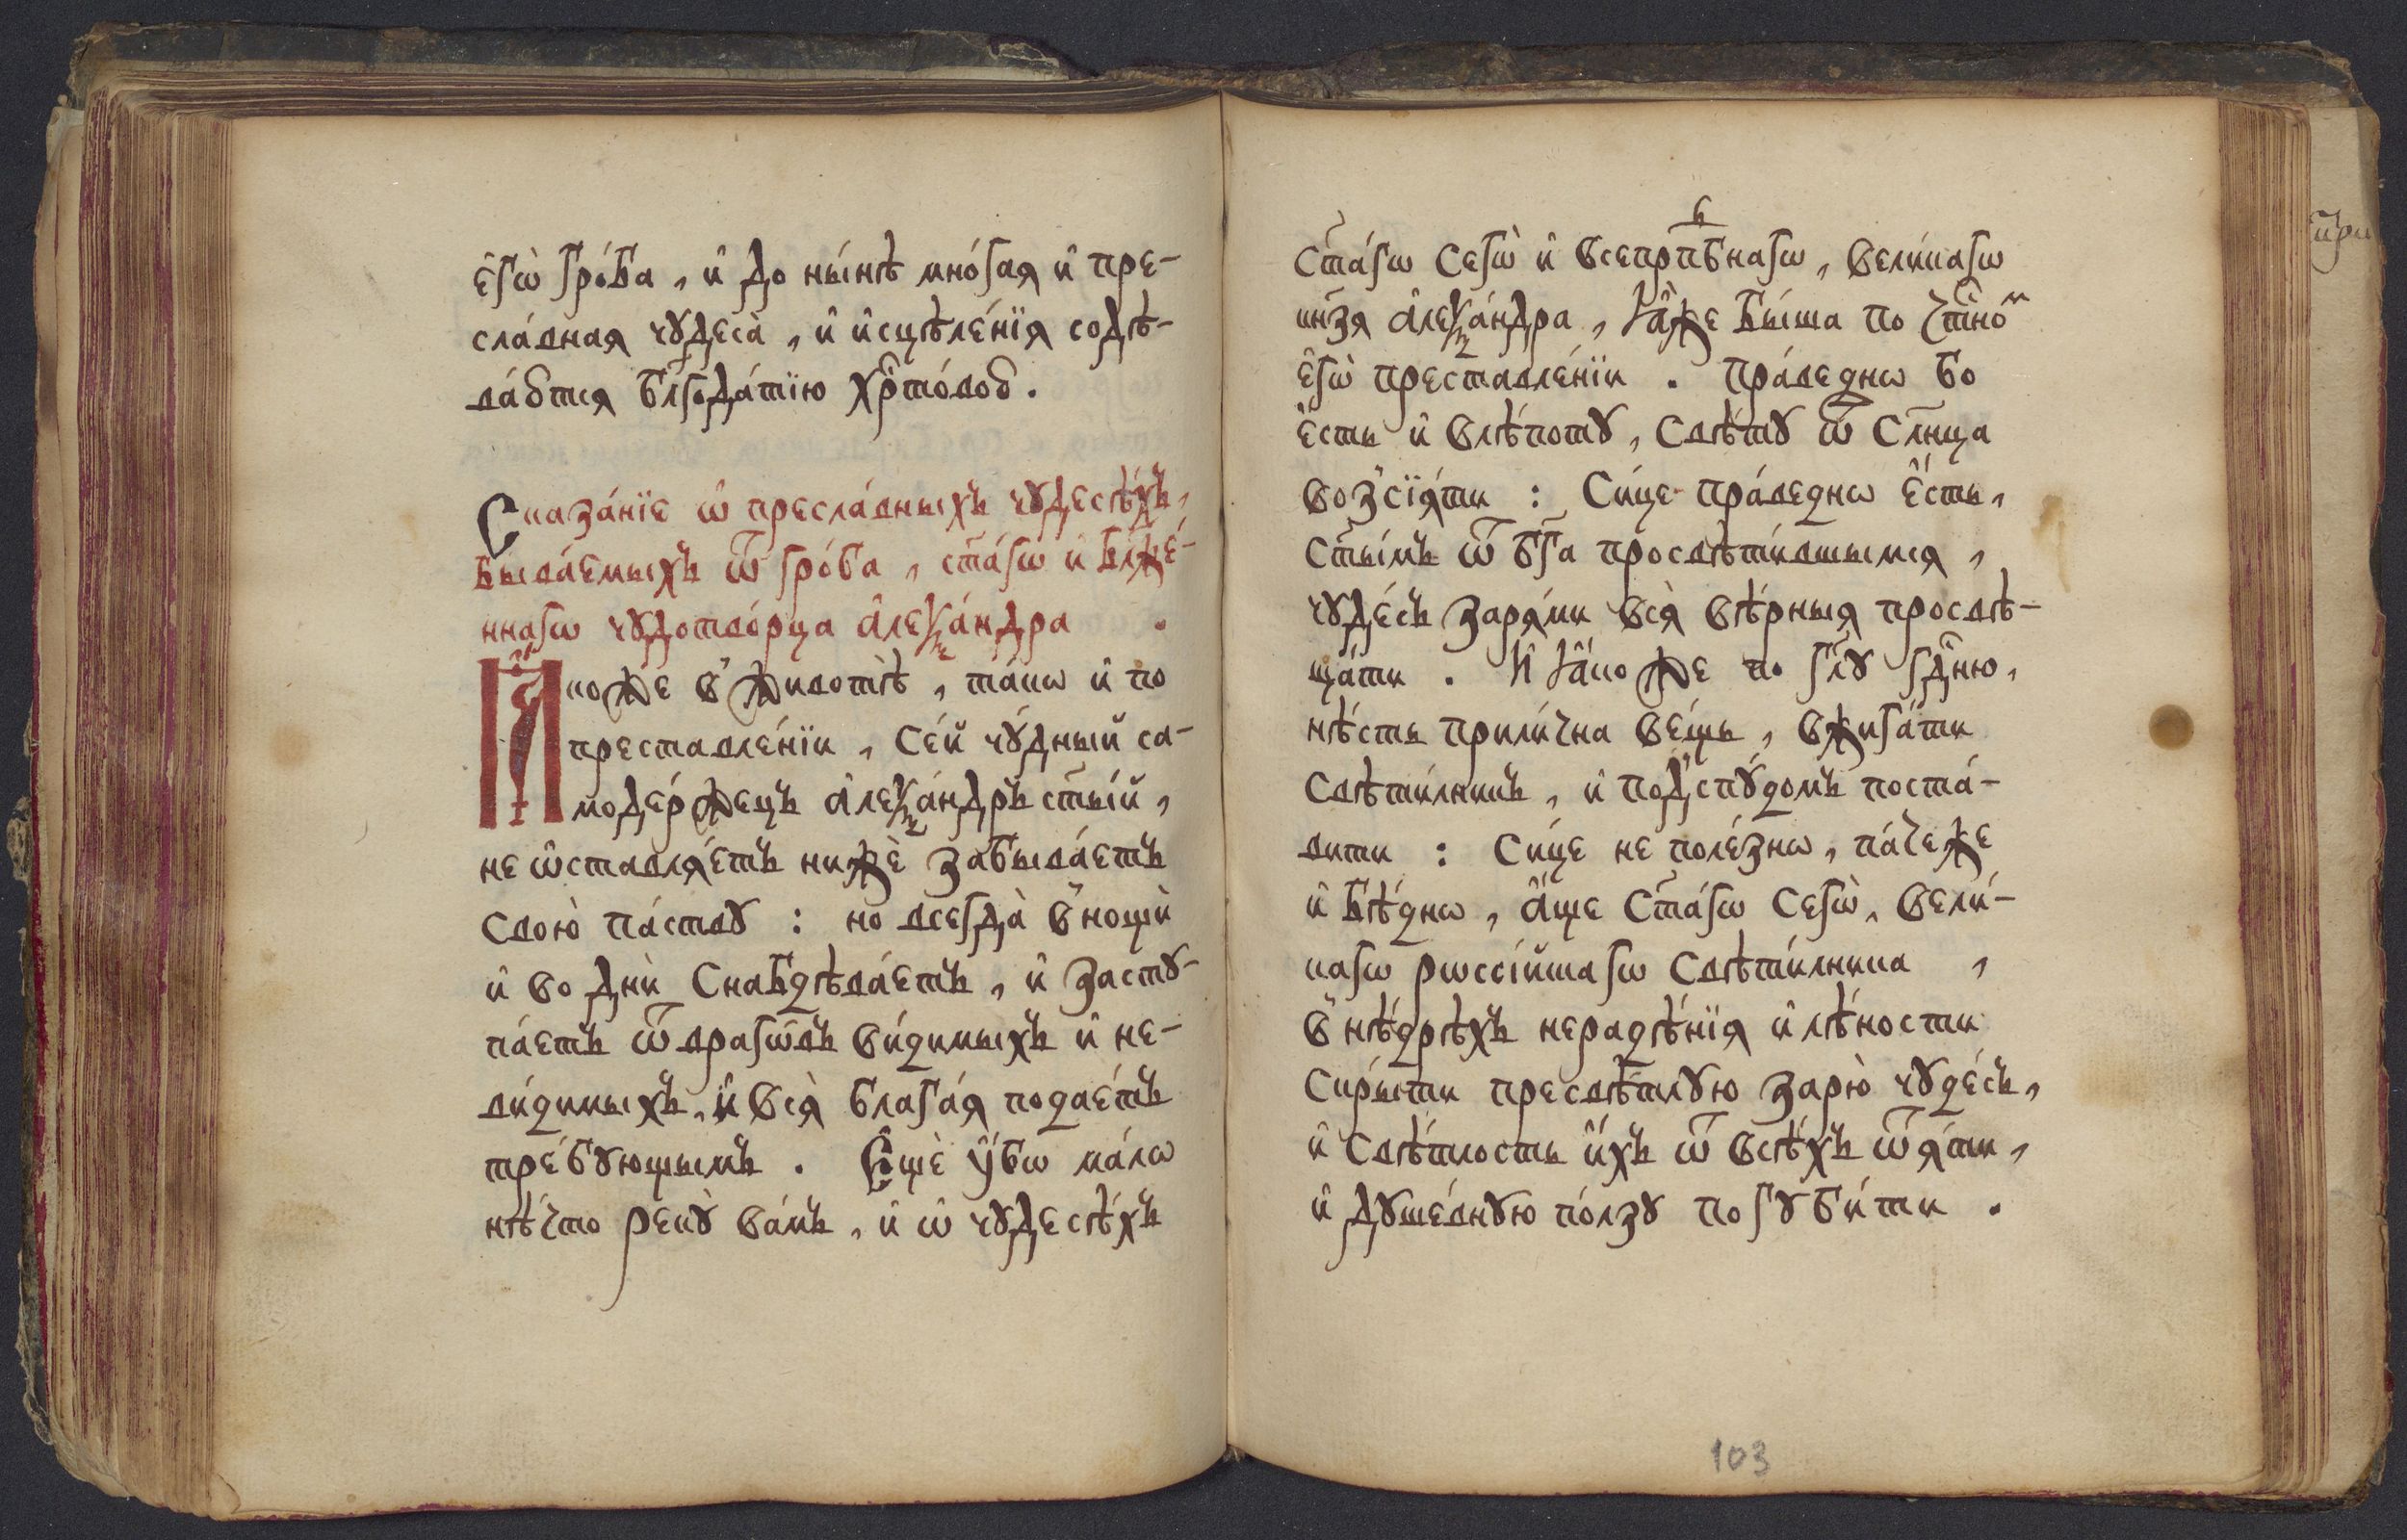 є҆гѡ̀ гро́ба, и҆ до ны́нѣ мно́гая и҆ пре-
сла́вная чꙋдеса̀, и҆ и҆сцѣле́нїя содѣ-
ва́ꙋтся бл҃года́тїю хр҇то́воꙋ.
Сказа́нїе ѡ҆ пресла́вныхъ чꙋдесѣ́хъ,
быва́емыхъ ѿ гро́ба, ст҃а́гѡ и҆ бл҃же́-
ннагѡ чꙋдотво́рца а҆леѯа́ндра .
Ꙗ҆коже в̾ животѣ̀, та́кѡ и҆ по
преставле́нїи, Се́й чꙋ́дный са-
моде́ржецъ а҆леѯа́ндръ ст҃ы́й,
не ѡ҆ставля́етъ нижѐ забыва́етъ
свою̀ па́ствꙋ : но всегда̀ в̾нощѝ
и҆ во днѝ снабдѣва́етъ, и҆ застꙋ-
па́етъ ѿ врагѡ́въ ви́димыхъ и҆ не-
ви́димыхъ, и҆ вся̀ блага́я подае́тъ
тре́бꙋющымъ . Є҆щѐ ᲂу҆́бѡ ма́лѡ
нѣ́что рекꙋ̀ ва́мъ, и҆ ѡ҆ чꙋдесѣ́хъ
ст҃а́гѡ сегѡ̀ и҆ всепрпⷣбнагѡ, вели́кагѡ
кн҃зя а҆леѯа́ндра, ꙗ҆̀же бы́ша по чⷭ҇тноⷨ
є҆гѡ̀ преставле́нїи . Пра́веднѡ бо
є҆́сть и҆ влѣ́потꙋ, свѣ́тꙋ ѿ сл҃нца
воз̾сїя́ти : Си́це пра́веднѡ є҆́сть,
ст҃ы́мъ ѿ бг҃а просвѣти́вшымся,
чꙋде́съ заря́ми вся̀ вѣ́рныя просвѣ-
ща́ти . И҆ ꙗ҆́коже по гл҃ꙋ гдⷭ҇ню,
нѣ́сть прили́чна ве́щь, вжига́ти
свѣти́лникъ, и҆ под̾спꙋ́домъ поста́-
вити : Си́це не поле́знѡ, па́чеже
и҆ бѣ́днѡ, а҆́ще ст҃а́гѡ сегѡ̀, вели́-
кагѡ рѡссі́йскагѡ свѣти́лника ,
в̾ нѣ́дрѣхъ нерадѣ́нїя и҆ лѣ́ности
скры́ти пресвѣ́тлꙋю зарю̀ чꙋде́съ,
и҆ свѣ́тлость и҆́хъ ѿ всѣ́хъ ѿя́ти,
и҆ дꙋше́внꙋю по́лзꙋ погꙋби́ти .
103